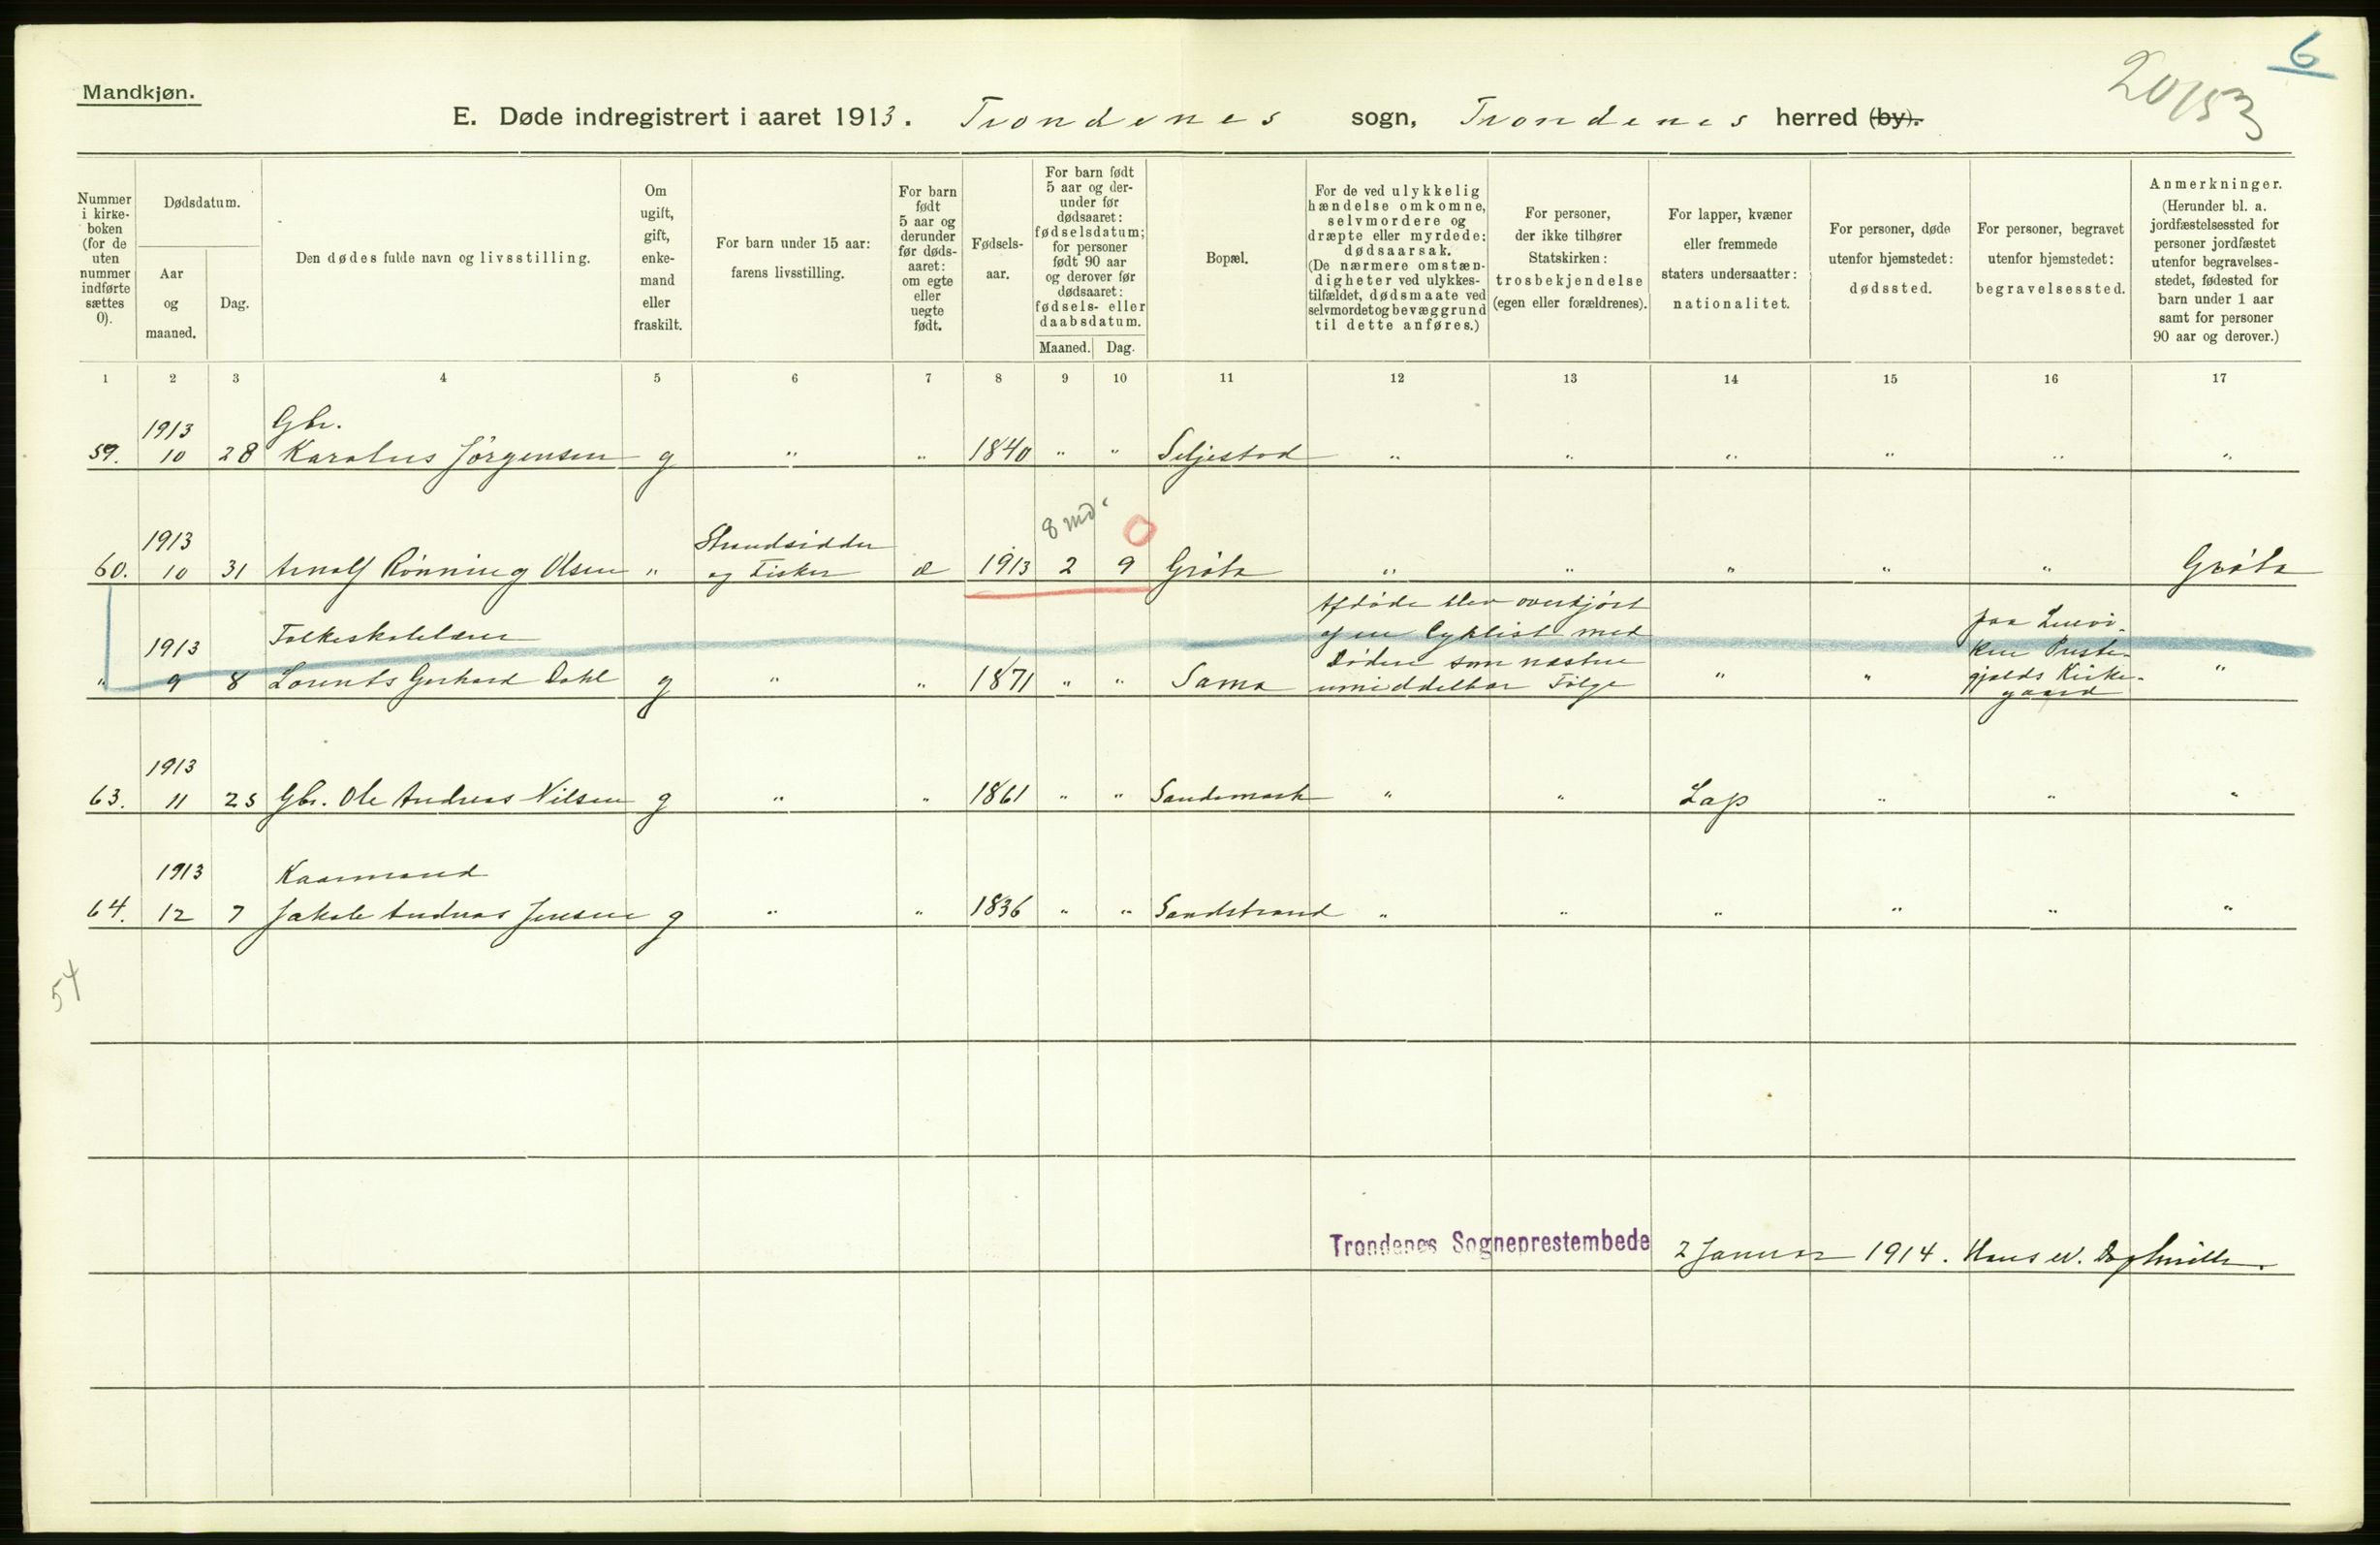 Mandkjøn.
6
20153
E. Døde indregistrert i aaret 1913. Trondenes sogn, Trondenes herred (by).
Nummer i kirke- boken (for de uten nummer indførte sættes 0).
Dødsdatum.
Aar og maaned.
Dag.
Den dødes fulde navn og livsstilling.
Om ugift, gift, enke- mand eller fraskilt.
For barn under 15 aar: farens livsstilling.
For barn født 5 aar og derunder før døds- aaret: om egte eller uegte født.
Fødsels- aar.
For barn født 5 aar og der- under før dødsaaret: fødselsdatum; for personer født 90 aar og derover før dødsaaret: fødsels- eller daabsdatum.
Maaned. Dag.
Bopæl.
For de ved ulykkelig hændelse omkomne, selvmordere og dræpte eller myrdede: dødsaarsak. (De nærmere omstæn- digheter ved ulykkes- tilfældet, dødsmaate ved selvmordet og bevæggrund til dette anføres.)
For personer, der ikke tilhører Statskirken: trosbekjendelse (egen eller forældrenes).
For lapper, kvæner eller fremmede staters undersaatter: nationalitet.
For personer, døde utenfor hjemstedet: dødssted.
For personer, begravet utenfor hjemstedet: begravelsessted.
Anmerkninger. (Herunder bl. a. jordfæstelsessted for personer jordfæstet utenfor begravelses- stedet, fødested for barn under 1 aar samt for personer 90 aar og derover.)
1 2 3 4 5 6 7 8 9 10 11 12 13 14 15 16 17
1913 Gbr.
59. 10 28 Karolus Jørgensen g " " 1840 " " Seljestad " " " " " "
8 md. 0
1913 Strandsidder
60. 10 31 Arnolf Rønning Olsen " og Fisker æ 1913 2 9 Grøta " " " " " Grøta
Afdøde blev overkjørt
1913 Folkeskolelærer af en Cyklist med paa
Døden som næstne Præste-
" 9 8 Lorents Gerhard Dahl g " " 1871 " " Sama umiddelbar Følge " " gjælds Kirke- "
gaard
1913
63. 11 25 Gbr. Ole Andreas Nilsen g " " 1861 " " Sandemark " " Lap " " "
1913 Kaarmand
64. 12 7 Jakob Andreas Jensen g " " 1836 " " Sandstrand " " " " " "
54
Trondenes Sogneprestembede 2 Januar 1914. Hans